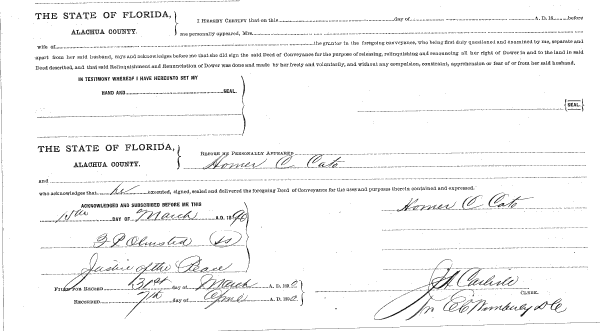 THE STATE OF FLORIDA,
ALACHUA COUNTY.
I HEREBY CERTIFY that on this day of A. D. 18 before
me personally appeared, Mrs.
wife of the grantor in the foregoing conveyance, who being first duly questioned and examined by me, separate and
apart from her said husband, says and acknowledges before me that she did sign the said Deed of Conveyance for the purpose of releasing, relinquishing and renouncing all her right of Dower in and to the land in said
Deed described, and that said Relinquishment and Renunciation of Dower was done and made by her freely and voluntarily, and without any compulsion, constraint, apprehension or fear of or from her said husband.
IN TESTIMONY WHEREOF I HAVE HEREUNTO SET MY
HAND AND SEAL.
SEAL.
THE STATE OF FLORIDA,
ALACHUA COUNTY.
BEFORE ME PERSONALLY APPEARED
Homer C Cato
and
who acknowledges that he executed, signed, sealed and delivered the foregoing Deed of Conveyance for the uses and purposes therein contained and expressed.
ACKNOWLEDGED AND SUBSCRIBED BEFORE ME THIS
DAY OF March A.D. 1890
Homer C Cato
Olmsted (LS)
Justice of the Peace
FILED FOR RECORD 31st day of March A. D. 189
RECORDED 7th day of April A. D. 189
J A Carlisle
CLERK.
Wimberly D C